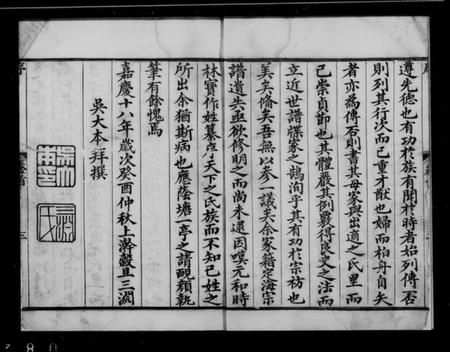 遵先德也有功於族有聞於時者始列傳否
則列其行次而已重才猷也婦而柏舟自矢
者亦為傳否則書其母家與出適之氏里而
已崇貞節也其體嚴其例覈得良史之法而
立近世譜牒家之鵠洵乎其有功於宗祊也
美矣備矣吾無以參一議矣余家籍定海宗
譜遺失亟欲修明之而尚未遑因嘆元和時
林寶作姓纂急天下之氏族而不知己姓之
所出余猶斯病也應蔭塘一亭之請靦顏執
筆有餘愧焉
嘉慶十八年歲次癸酉仲秋上澣穀旦三澥
吳大本拜撰
三
7 8 0